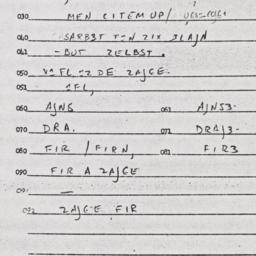 030 MEN CITEMUP/
040 SARBST T-N ZIX 3LAJN
041 -BUT ZELBST.
050 FL ZZ DE ZAJGE.
052 FL,
060 AJNS 061 AJNS3-
070 DRA. 072 DRAJ3-
080 FIR / FIRN, 083 FIR3
090 FIR A ZAJGE
091 —
092 ZAJGE FIR